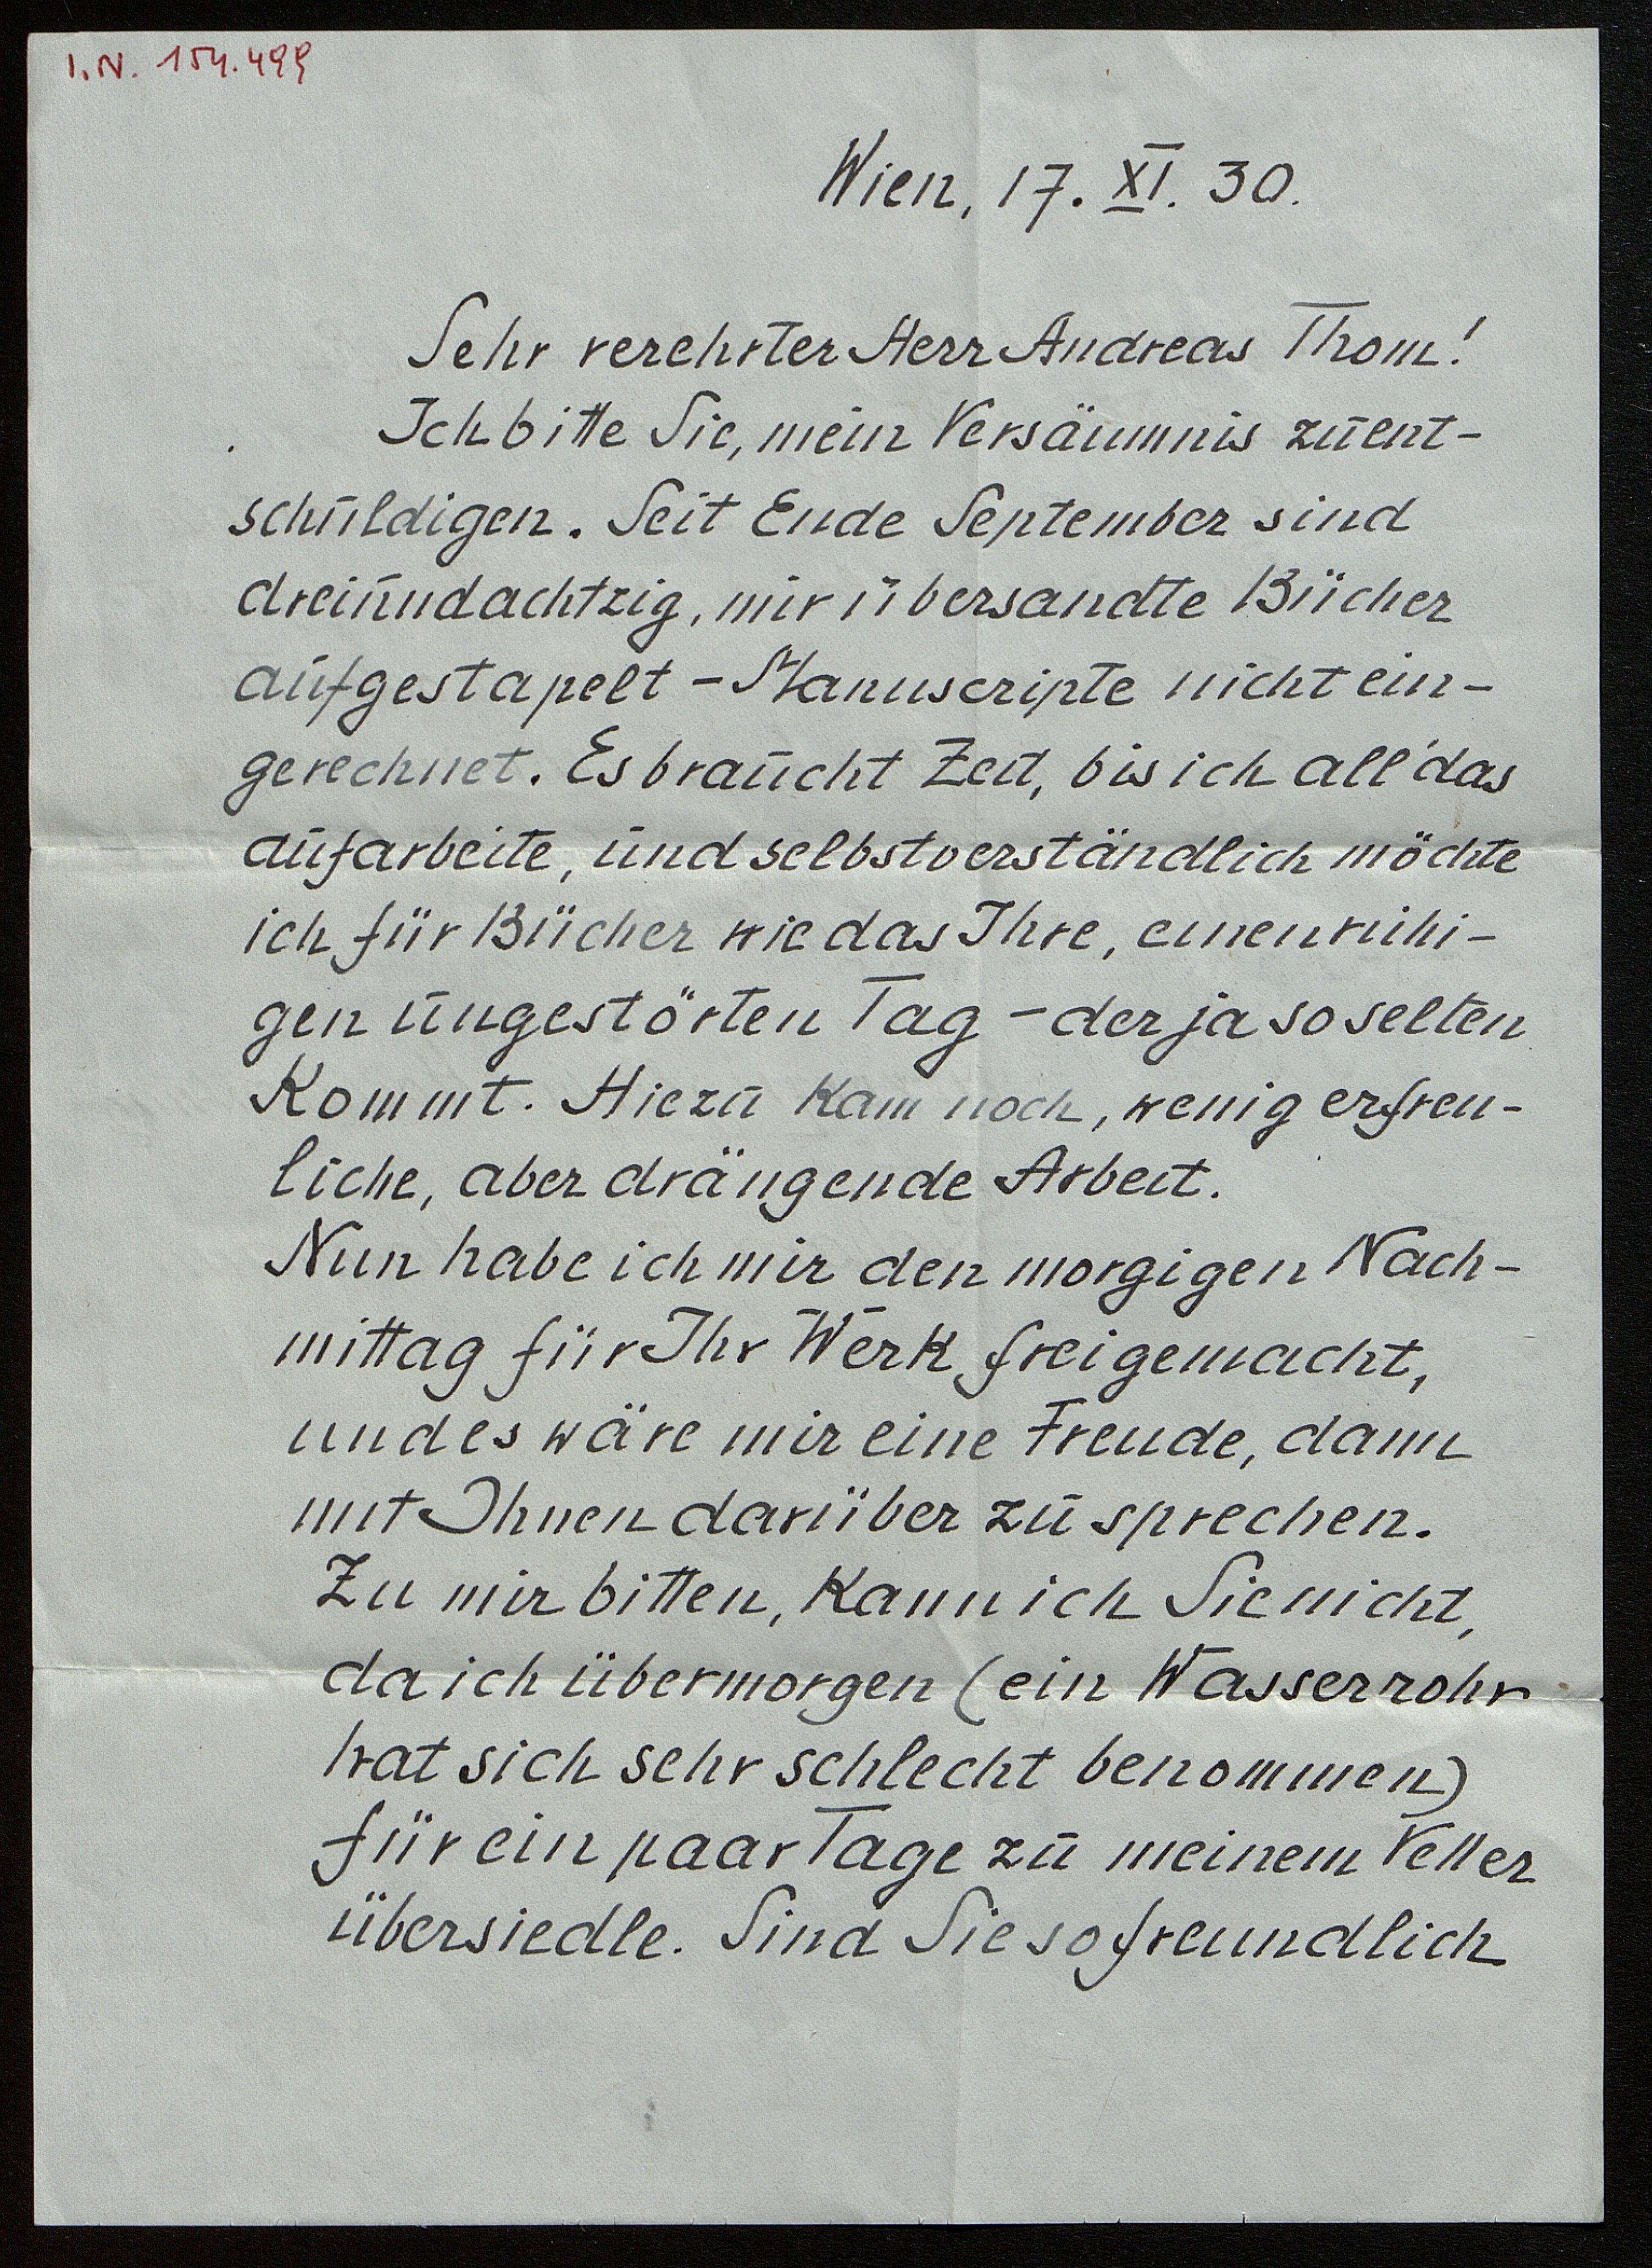 I.N. 154.499
Wien, 17. XI. 30.
Sehr verehrter Herr Andreas Thom!
Ich bitte Sie, mein Versäumnis zu ent-
schuldigen. Seit Ende September sind
dreiundachtzig, mir übersandte Bücher
aufgestapelt - Manuscripte nicht ein-
gerechnet. Es braucht Zeit, bis ich all' das
aufarbeite, und selbstverständlich möchte
ich für Bücher wie das Ihre, einen ruhi-
gen ungestörten Tag - der ja so selten
kommt. Hiezu kam noch, wenig erfreu-
liche, aber drängende Arbeit.
Nun habe ich mir den morgigen Nach-
mittag für Ihr Werk freigemacht,
und es wäre mir eine Freude, dann
mit Ihnen darüber zu sprechen.
Zu mir bitten, kann ich Sie nicht,
da ich übermorgen (ein Wasserrohr
hat sich sehr schlecht benommen)
für ein paar Tage zu meinem Vetter
übersiedle. Sind Sie so freundlich